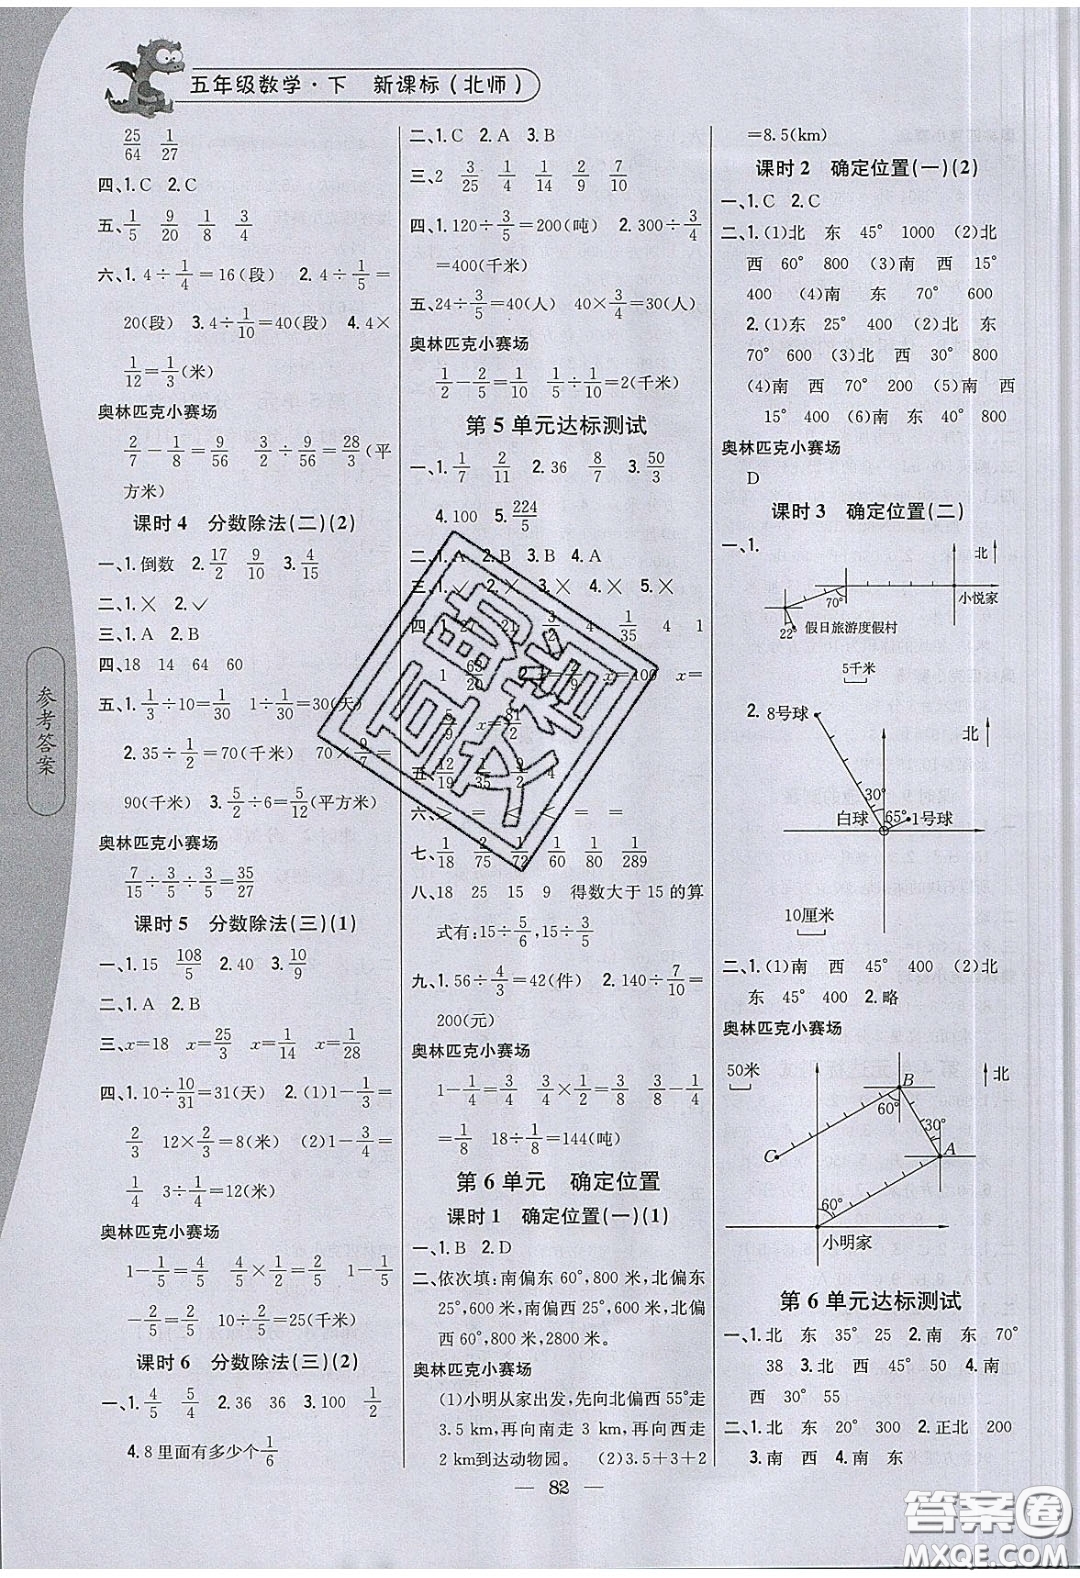 五年级数学·下 新课标(北师)
25/64 1/27
四、1.C 2.C
五、1/5 9/20 1/8 3/4
六、1. 4÷1/4=16(段) 2. 4÷1/5=
20(段) 3. 4÷1/10=40(段) 4. 4×
1/12=1/3(米)
奥林匹克小赛场
2/7-1/8=9/56 3/2÷9/56=28/3(平
方米)
课时4 分数除法(二)(2)
一、1.倒数 2. 17/2 9/10 3. 4/15
二、1.× 2.✓
三、1.A 2.B
四、18 14 64 60
五、1. 1/3÷10=1/30 1÷1/30=30(天)
2. 35÷1/2=70(千米) 70×9/7=
90(千米) 3. 5/2÷6=5/12(平方米)
奥林匹克小赛场
7/15÷3/5÷3/5=35/27
课时5 分数除法(三)(1)
一、1. 15 108/5 2. 40 3. 10/9
二、1.A 2.B
三、x=18 x=25/3 x=1/14 x=1/28
四、1. 10÷10/31=31(天) 2. (1)1-1/3=
2/3 12×2/3=8(米) (2)1-3/4=
1/4 3÷1/4=12(米)
奥林匹克小赛场
1-1/5=4/5 4/5×1/2=2/5 1-1/5
-2/5=2/5 10÷2/5=25(千米)
课时6 分数除法(三)(2)
一、1. 4/5 5/4 2. 36 36 3. 100 1/2
4. 8里面有多少个1/6
二、1.C 2.A 3.B
三、2 3/25 1/4 1/14 2/9 7/10
四、1. 120÷3/5=200(吨) 2. 300÷3/4
=400(千米)
五、24÷3/5=40(人) 40×3/4=30(人)
奥林匹克小赛场
1/2-2/5=1/10 1/5÷1/10=2(千米)
第5单元达标测试
一、1. 1/7 2/11 2. 36 8/7 3. 50/3
4. 100 5. 224/5
二、1.A 2.B 3.B 4.A
三、1.✓ 2.× 3.× 4.× 5.×
四 1 27 21 3/2 4 1/35 4 1
1 63/20 2. x=2/9 x=100 x=
5/9 x=81/2
五 12/19 1/35 9/2 4
六、< = < < = =
七、1/18 2/75 1/72 1/60 1/80 1/289
八、18 25 15 9 得数大于15的算
式有:15÷5/6,15÷3/5
九、1. 56÷4/3=42(件) 2. 140÷7/10=
200(元)
奥林匹克小赛场
1-1/4=3/4 3/4×1/2=3/8 3/4-3/8-1/4
=1/8 18÷1/8=144(吨)
第6单元 确定位置
课时1 确定位置(一)(1)
一、1.B 2.D
二、依次填:南偏东60°,800米,北偏东
25°,600米,南偏西25°,600米,北偏
西60°,800米,2800米。
奥林匹克小赛场
(1)小明从家出发,先向北偏西55°走
3.5 km,再向南走3 km,再向西走
2 km到达动物园。 (2)3.5+3+2
=8.5(km)
课时2 确定位置(一)(2)
一、1.C 2.C
二、1.(1)北 东 45° 1000 (2)北
西 60° 800 (3)南 西 15°
400 (4)南 东 70° 600
2.(1)东 25° 400 (2)北 东
70° 600 (3)北 西 30° 800
(4)南 西 70° 200 (5)南 西
15° 400 (6)南 东 40° 800
奥林匹克小赛场
D
课时3 确定位置(二)
一、1.
北
70°
小悦家
22°
假日旅游度假村
5千米
2.
8号球
北
30°
65°
白球
1号球
10厘米
二、1.(1)南 西 45° 400 (2)北
东 45° 400 2.略
奥林匹克小赛场
50米
B
北
60°
30°
C
A
60°
小明家
第6单元达标测试
一、1.北 东 35° 25 2.南 东 70°
38 3.北 西 45° 50 4.南
西 30° 55
二、1.北 东 20° 300 2.正北 200
3.南 西 4.南 东
参考答案
82
答案圈
MXQE.COM